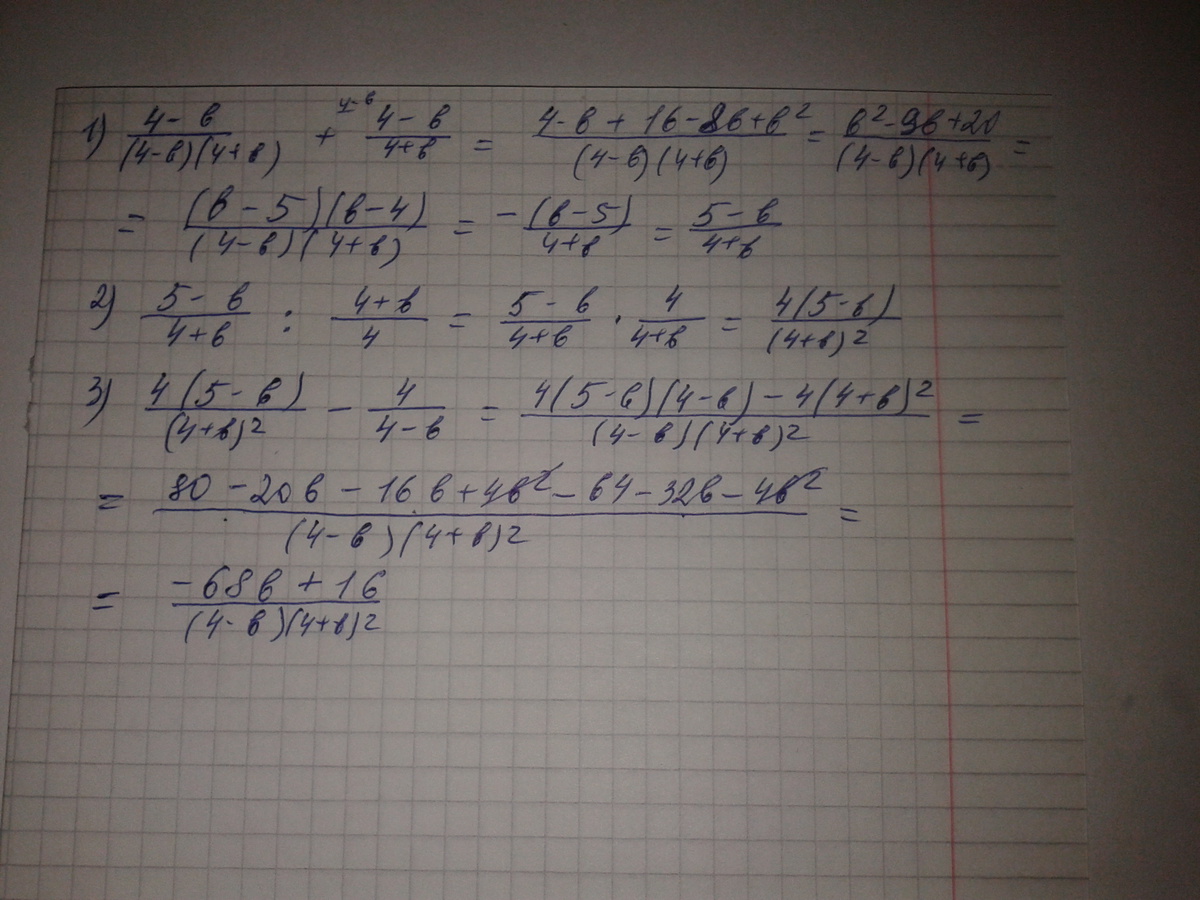 1) (4-в)/((4-в)(4+в)) + ^(4-в) (4-в)/(4+в) = (4-в+16-8в+в²)/((4-в)(4+в)) = (в²-9в+20)/((4-в)(4+в)) =
= ((в-5)(в-4))/((4-в)(4+в)) = (-(в-5))/(4+в) = (5-в)/(4+в)
2) (5-в)/(4+в) : (4+в)/4 = (5-в)/(4+в) · 4/(4+в) = (4(5-в))/((4+в)²)
3) (4(5-в))/((4+в)²) - 4/(4-в) = (4(5-в)(4-в)-4(4+в)²)/((4-в)(4+в)²) =
= (80-20в-16в+4в²-64-32в-4в²)/((4-в)(4+в)²) =
= (-68в+16)/((4-в)(4+в)²)